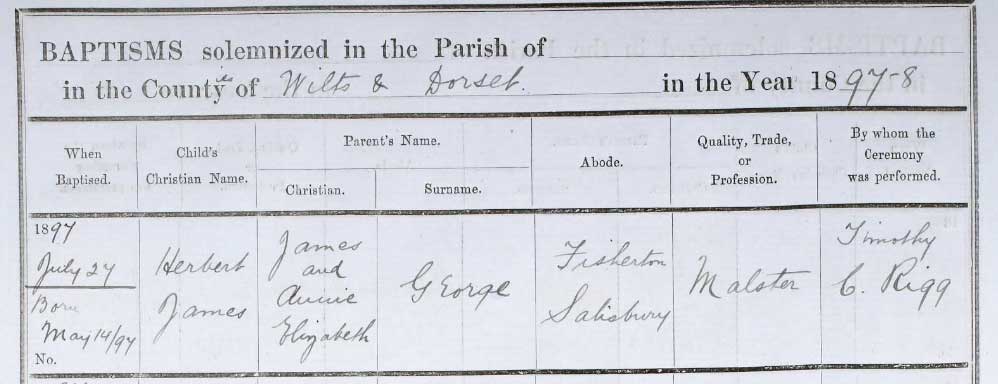 BAPTISMS solemnized in the Parish of
in the County ies of Wilts & Dorset. in the Year 1897-8
When Baptised.
Child's Christian Name.
Parent's Name.
Christian.
Surname.
Abode.
Quality, Trade, or Profession.
By whom the Ceremony was performed.
1897
July 27
Born
May 14/97
No.
Herbert
James
James
and
Annie
Elizabeth
George
Fisherton
Salisbury
Malster
Timothy
C. Rigg